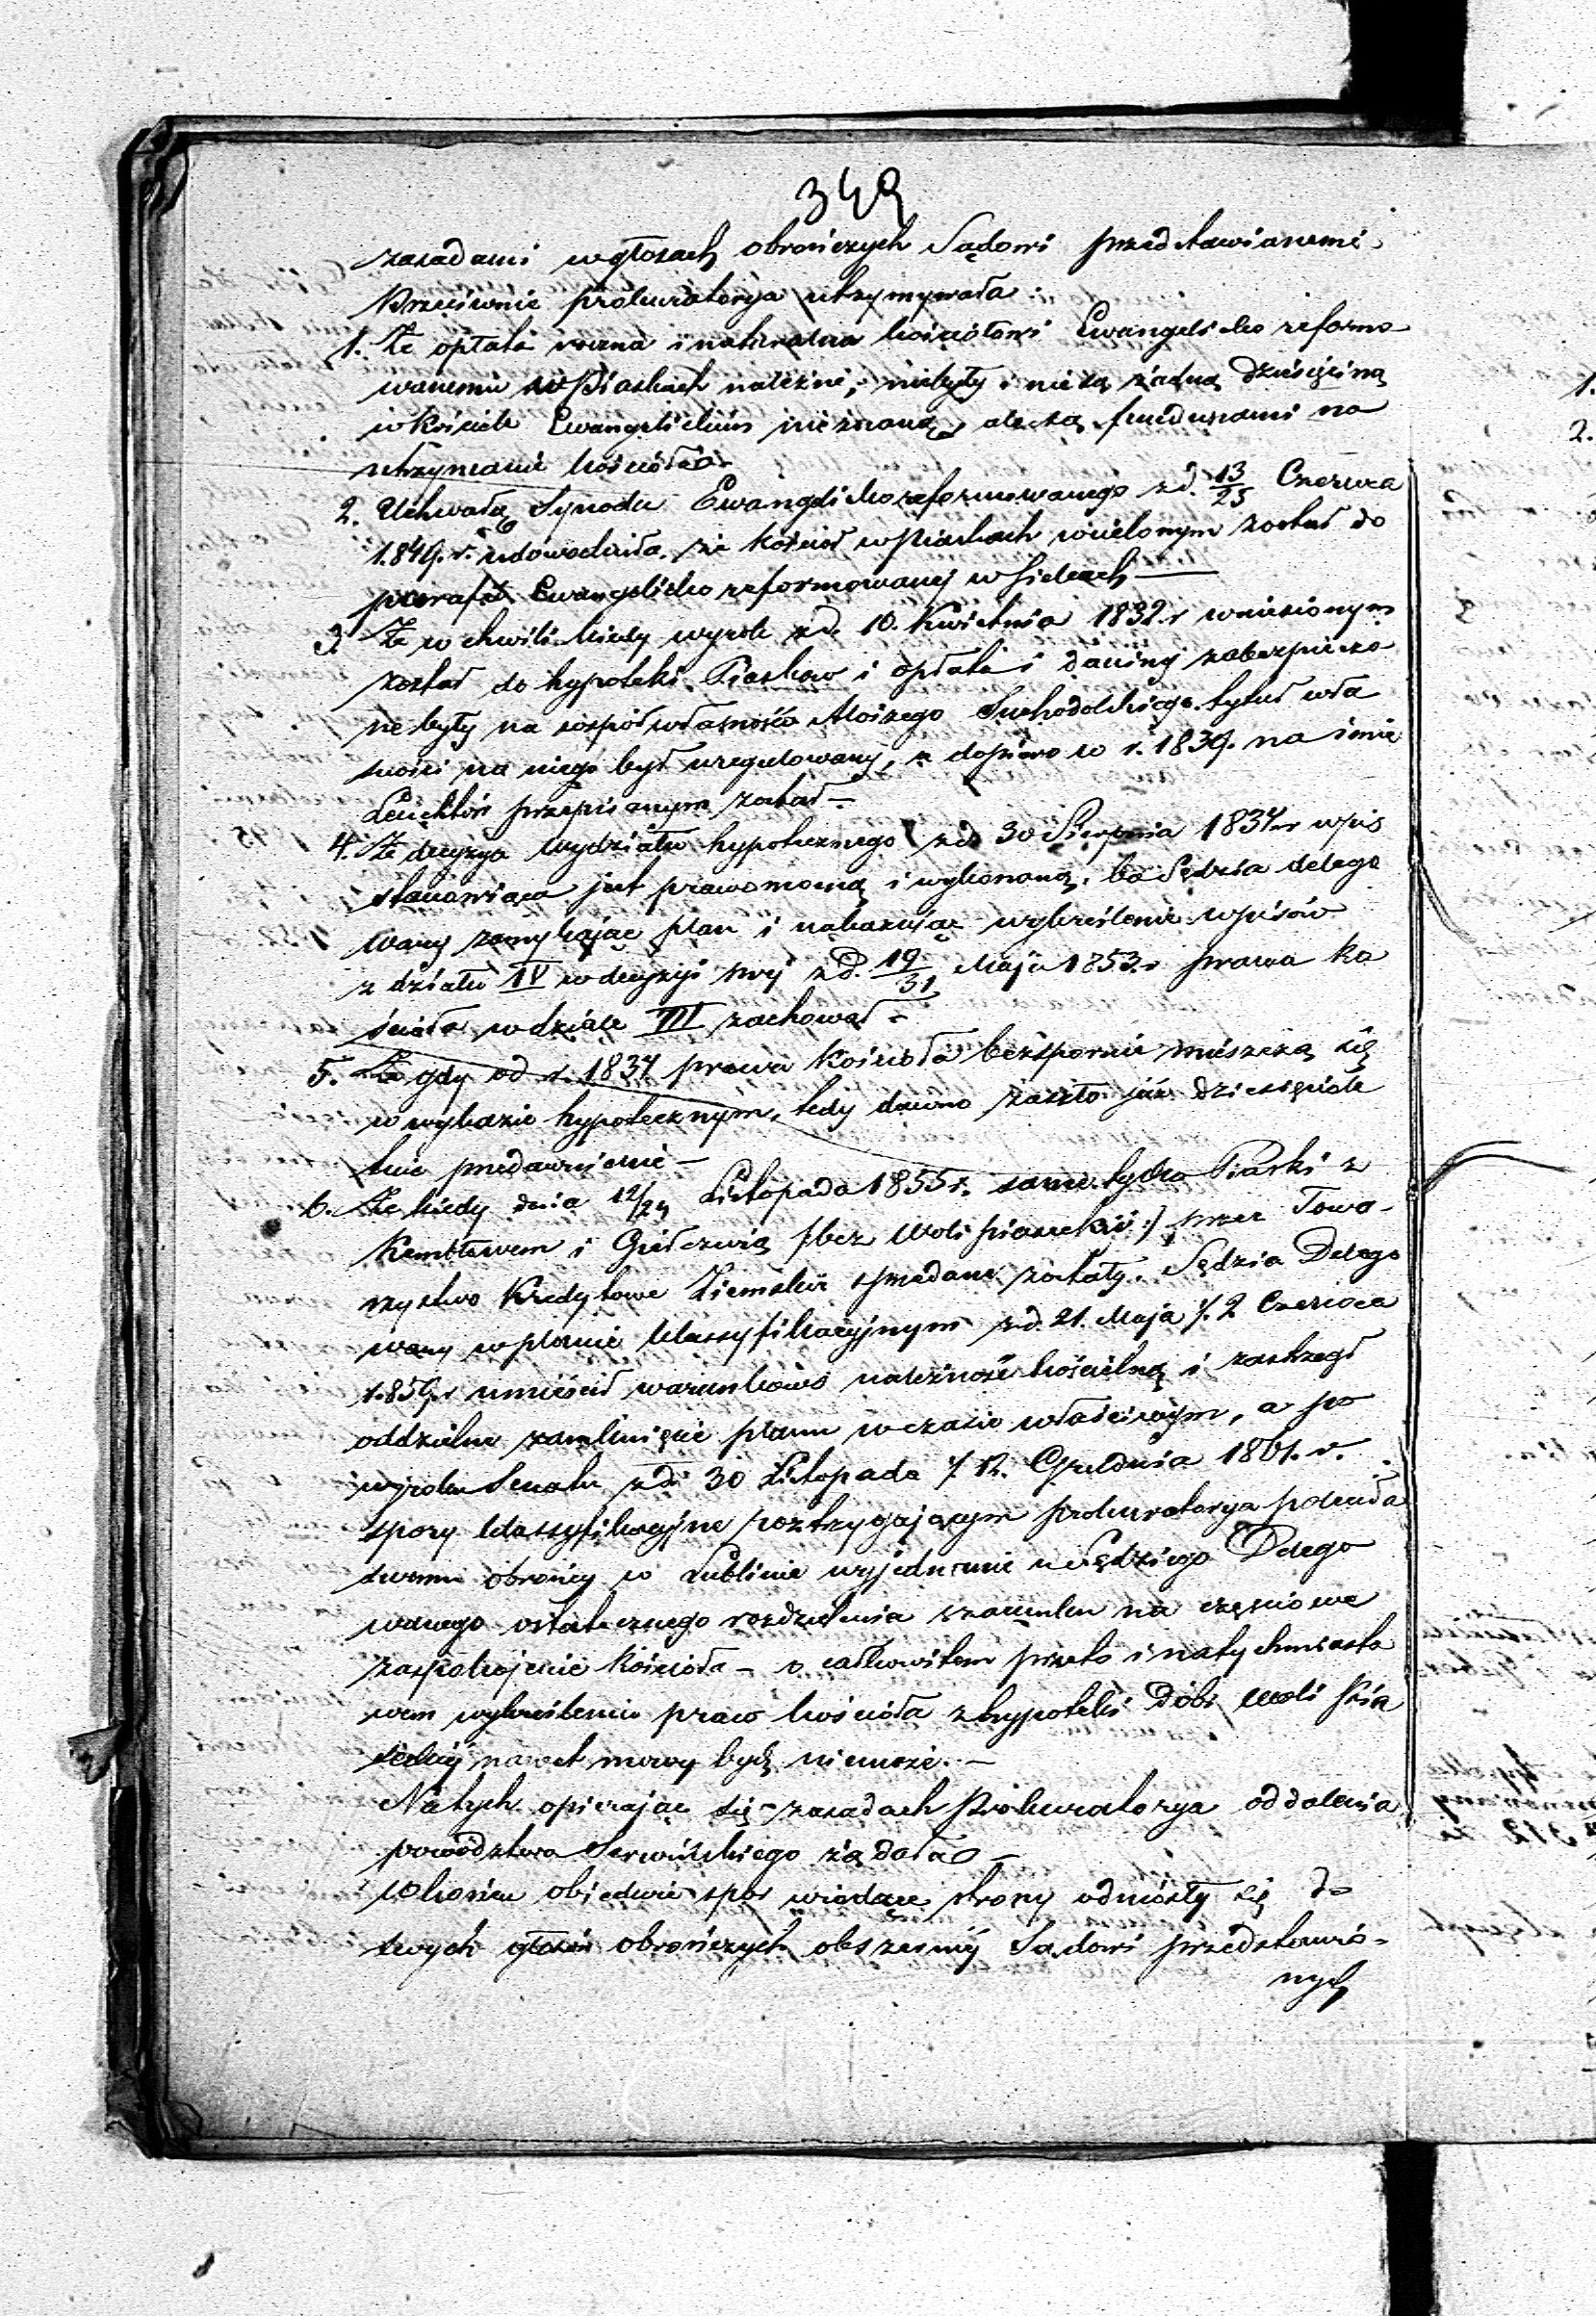 349
zasadami w głosach obrończych Sądowi przedstawianemi.
Przeciwnie prokuratorya utrzymywała:
1. Że opłata roczna i naturalna kościołowi Ewangelicko reformo
wanemu w Piaskach należne, niebyły i nie są żadną dziesięciną
w kościele Ewangelickim nieznaną, ale są funduszami na
utrzymanie kościoła.
2. Uchwałą Synodu Ewangelicko reformowanego z d. 13/25 Czerwca
1849. r. udowodniła, że kościół w Piaskach wcielonym został do
parafii Ewangelicko reformowanej w Sielcach —
3. Że w chwili kiedy wyrok z d. 10. Kwietnia 1832. r wniesionym
został do hypoteki Piasków i opłata i daniny zabezpieczo
ne były na współwłasności Aloizego Suchodolskiego tytuł wła
sności na niego był uregulowany, a dopiero w r. 1839. na imie
przepisanym został —
4. Że decyzya Wydziału hypotecznego z d 30 Sierpnia 1834. r wpis
stanowiąca jest prawomocną i wykonaną, bo Sędzia delego
wany zamykając plan i nakazując wykreślenie wpisów
z działu IV w decyzyi swej z d. 19/31 Maja 1853. r prawa ko
ścioła w dziale III zachował —
5. Że gdy od r. 1834 prawa Kościoła bezspornie mieszczą się
w wykazie hypotecznym, tedy dawno zaszło już dziesięciole
tnie przedawnienie —
6. Że kiedy dnia 12/24 Listopada 1855 r. same tylko Piaski z
i Giełczwią /:bez Woli Piaseckiéj:/ przez Towa-
rzystwo Kredytowe Ziemskie sprzedane zostały. Sędzia Delego
wany w planie klassyfikacyjnym z d. 21. Maja /. 2 Czerwca
1859. r umieścił warunkowo należność kościelną i zastrzegł
oddzielne zamknięcie planu w czasie właściwym, a po
wyroku Senatu z d. 30 Listopada /. 12. Grudnia 1861. r.
spory klassyfikacyjne roztrzygającym prokuratorya poleciła
swemu obrońcy w Lublinie wyjednanie u Sędziego Delego
wanego ostatecznego rozdzielenia szacunku na częściowe
zaspokojenie Kościoła — o całkowitem przeto i natychmiasto
wem wykreśleniu praw kościoła z hypoteki Dóbr Woli Pia
seckiéj nawet mowy być niemoże. —
Na tych opierając się zasadach Prokuratorya oddalenia
powództwa żądała —
W końcu obiedwie spór wiodące strony odniosły się do
swych głosów obrończych obszerniéj Sądowi przedstawio-
nych